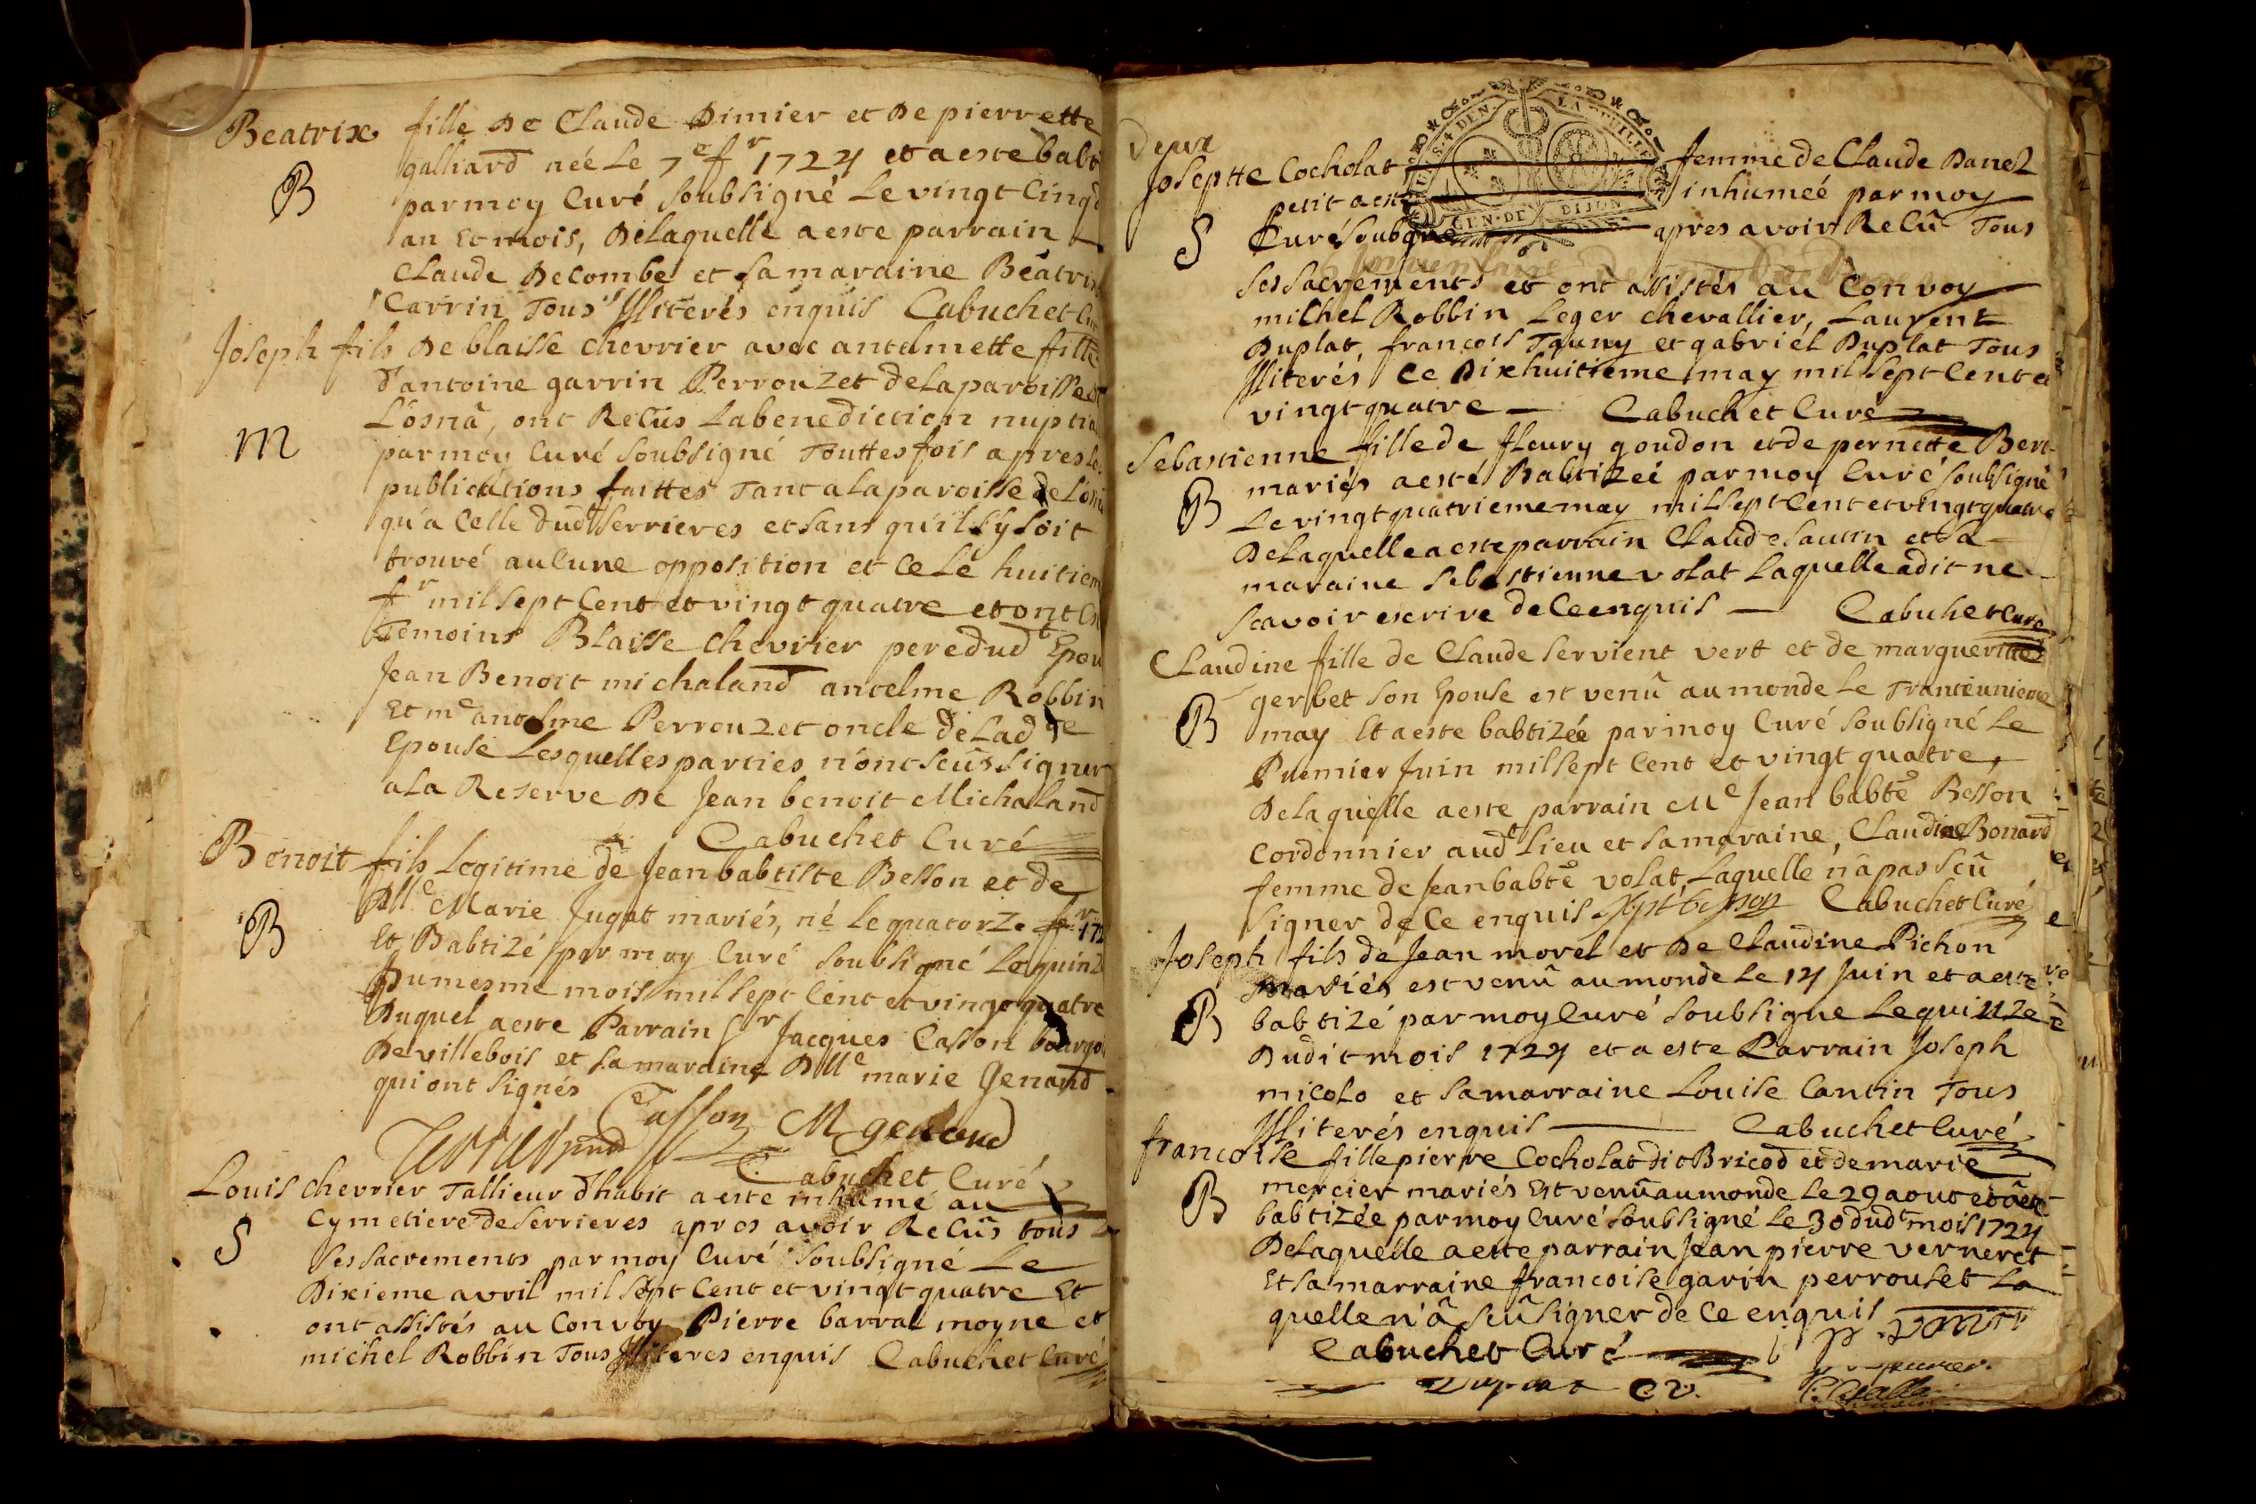 Beatrix fille De Claude Dimier et De pierrette
galliard neé Le 7e fr 1724 et a este babt
B
par moy Curé soubsigné Le vingt Cinq
an Et mois, De laquelle a este parrain
Claude Decombe et sa maraine Béatrix
Carrin Tous Illiterés enquis Cabuchet Cur
Joseph fils De blaisse chevrier avec antelmette fille
d'antoine garrin Perrouzet de la paroisse de
L'osna, ont Recûs La benediction nuptia
M
par moy Curé soubsigné Touttesfois apres Le
publications faittes Tant a la paroisse de L'osna
qu'a Celle dudt Serrieres et sans qu'il sy soit
trouvé auCune opposition et Ce Le huitiem
fr mil sept Cent et vingt quatre et ont Est
Temoins Blaisse chevrier pere dudt Epou
Jean Benoit michaland antelme Robbin
Et me antelme Perrouzet oncle de Lad de
Epouse Lesquelles parties n'ont sceûs signer
a La Reserve De Jean benoit Michaland
Cabuchet Curé
Benoit fils Legitime de Jean babtiste Besson et de
Dlle Marie Jugat mariés, né le quatorze fr 172
B
Et Babtizé par moy Curé soubsigné Le quinz
Du mesme mois mil sept Cent et vingt quatre
Duquel a este Parrain Sr Jacques Casson bourgo
De villebois et sa maraine Dlle marie Genand
qui ont signés
Casson M genand
Cabuchet Curé
Louis chevrier Tallieur d'habit a este inhumé au
S
Cymetiere de Serrieres apres avoir Recûs tous
ses sacrements par moy Curé soubsigné Le
Dixieme avril mil sept Cent et vingt quatre Et
ont assistés au Convoy Pierre barral moyne et
michel Robbin Tous Illiteres enquis Cabuchet Curé
Deux
Joseptte Cocholat femme de Claude Danel
petit a esté inhumeé par moy
S
Curé soubsigné apres avoir Recû Tous
ses sacrements et ont assistés au Convoy
michel Robbin Leger chevallier, Laurent
Duplat, françois Tguny et gabriel Duplat Tous
Illiterés Ce Dixhuitieme may mil sept Cent et
vingt quatre Cabuchet Curé
Sebastienne fille de fleury goudon et de pernette Bert
B
mariés a esté Babtizeé par moy Curé soubsigné
Le vingt quatrieme may mil sept Cent et vingt quatre
De Laquelle a este parrain Claude Sautin et Sa
maraine sebastienne volat Laquelle a dit ne
scavoir escrire de Ce enquis Cabuhet Curé
Claudine fille de Claude servient vert et de marguerittes
gerbet son Epouse est venû au monde Le Tranteunieme
B
may Et a este babtizée par moy Curé soubsigné Le
Premier Juin mil sept Cent et vingt quatre,
De laquelle a este parrain Me Jean babte Besson
Cordonnier audt Lieu et sa maraine, Claudine Bonard
femme de Jean babte volat Laquelle n'a pas sceû
signer de Ce enquis Cabuchet Curé
Joseph fils de Jean morel et De Claudine Pichon
mariés est venû au monde Le 14 Juin et a esté
B
babtizé par moy Curé soubsigne Le quinze
Dudit mois 1724 et a este Parrain Joseph
micolo et sa marraine Louise Cantin Tous
Illiterés enquis Cabuchet Curé
francoise fille pierre Cocholat dit Bricod et de marie
mercier mariés Est venû au monde Le 29 aout et a esté
B
babtizée par moy Curé soubsigné Le 30 dudt mois 1724
De laquelle a este parrain Jean pierre verneret
Et sa marraine francoise garin perrouset La
quelle n'a sceû signer de Ce enquis
Cabuchet Curé